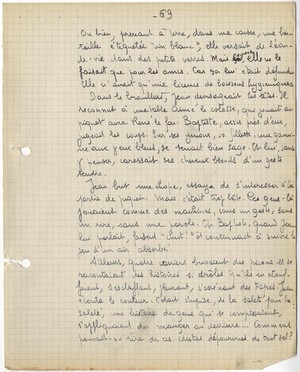 - 69
Ou bien, prenant à terre, dans une caisse, une bou-
teille étiquetée "vin blanc", elle versait de l'eau-
de-vie dans des petits verres. Mais elle ne le
faisait que pour les amis. Car ça lui était défendu.
Elle n'avait qu'une licence de boissons hygiéniques.
Dans le brouillard, Jean dévisageait les têtes. Il
reconnut à une table Aimé le colosse, qui jouait au
piquet avec René le fou. Baptiste, assis près d'eux,
jugeait les coups. Sur ses genoux, une gamine
aux yeux bleus, se tenait bien sage. Et lui, sans
y penser, caressait ses cheveux blonds d'un geste
tendre.
Jean but une chope, essaya de s'intéresser à la
partie de piquet. Mais c'était trop bête. Ces gens-là
jouaient comme des machines, sans un geste, sans
un rire, sans une parole. Et Baptiste, quand Jean
lui parlait, faisait "Chut!" et continuait à suivre le
jeu d'un air absorbé.
Ailleurs, quatre ouvriers buvaient des pecons et se
racontaient des histoires si drôles qu'ils en étouf-
faient, s'esclaffaient, pleuraient, s'assénaient des tapes. Jean
écouta le conteur. C'était inepte, de la saleté pour la
saleté, une histoire de gens qui se
s'appliquaient du manger au derrière... Comment
pouvait-on rire de ces idioties déjà connues de tout